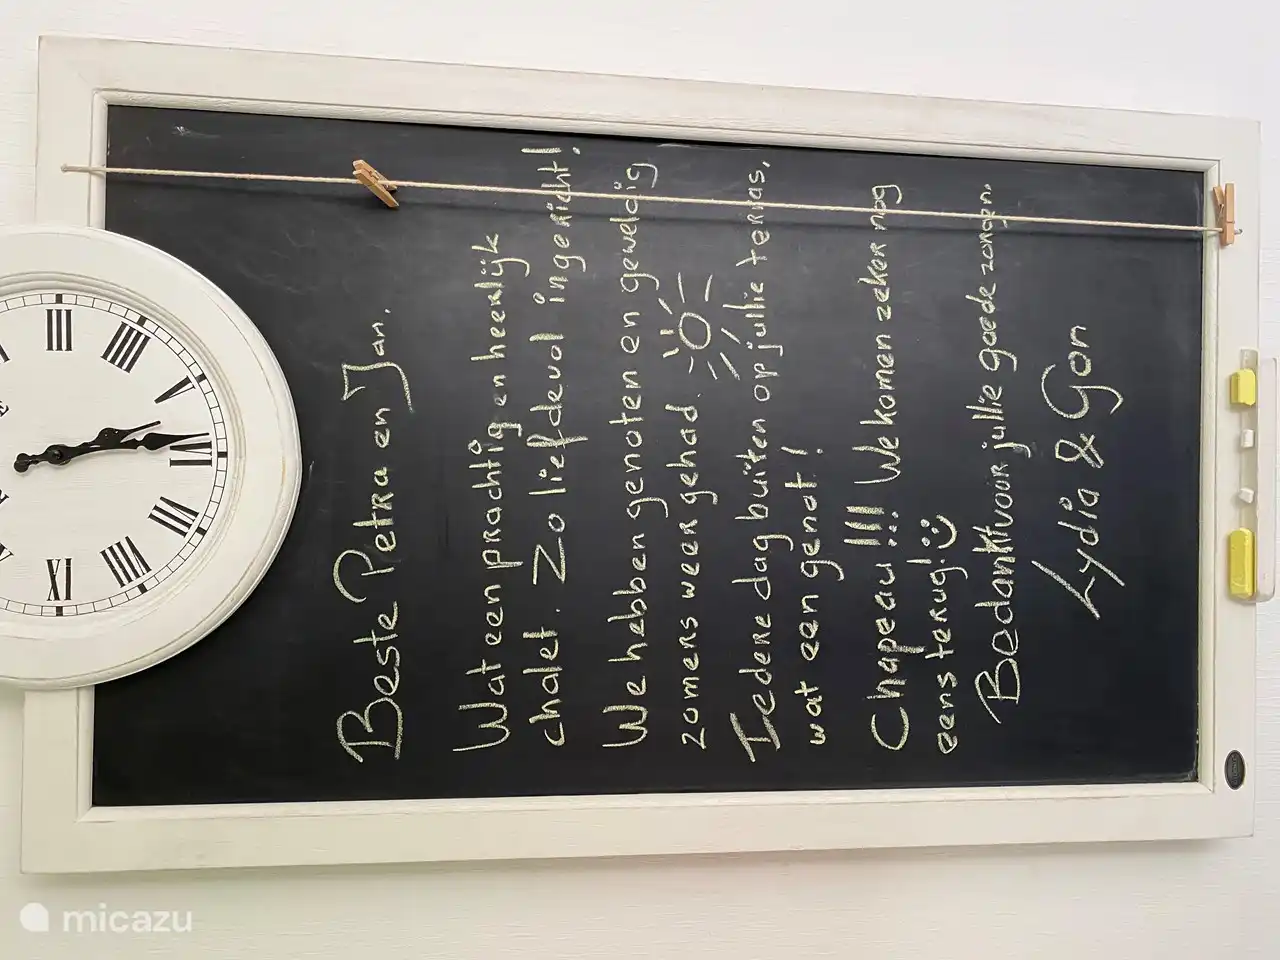 Beste Petra en Jan.
Wat een prachtig en heerlijk
chalet. Zo liefdevol ingericht!
We hebben genoten en geweldig
zomers weer gehad.
Iedere dag buiten op jullie terras,
wat een genot!
Chapeau!!!! We komen zeker nog
eens terug!
Bedankt voor jullie goede zorgen.
Lydia & Gon
III
IIII
V
VI
VII
VIII
IX
micazu